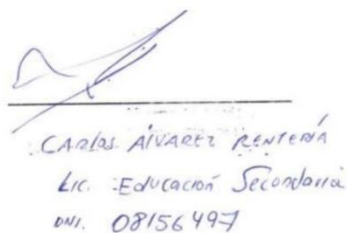 CARlos AlVAREZ RENTERÍA
Lic. Educación Secundaria
DNI. 08156497